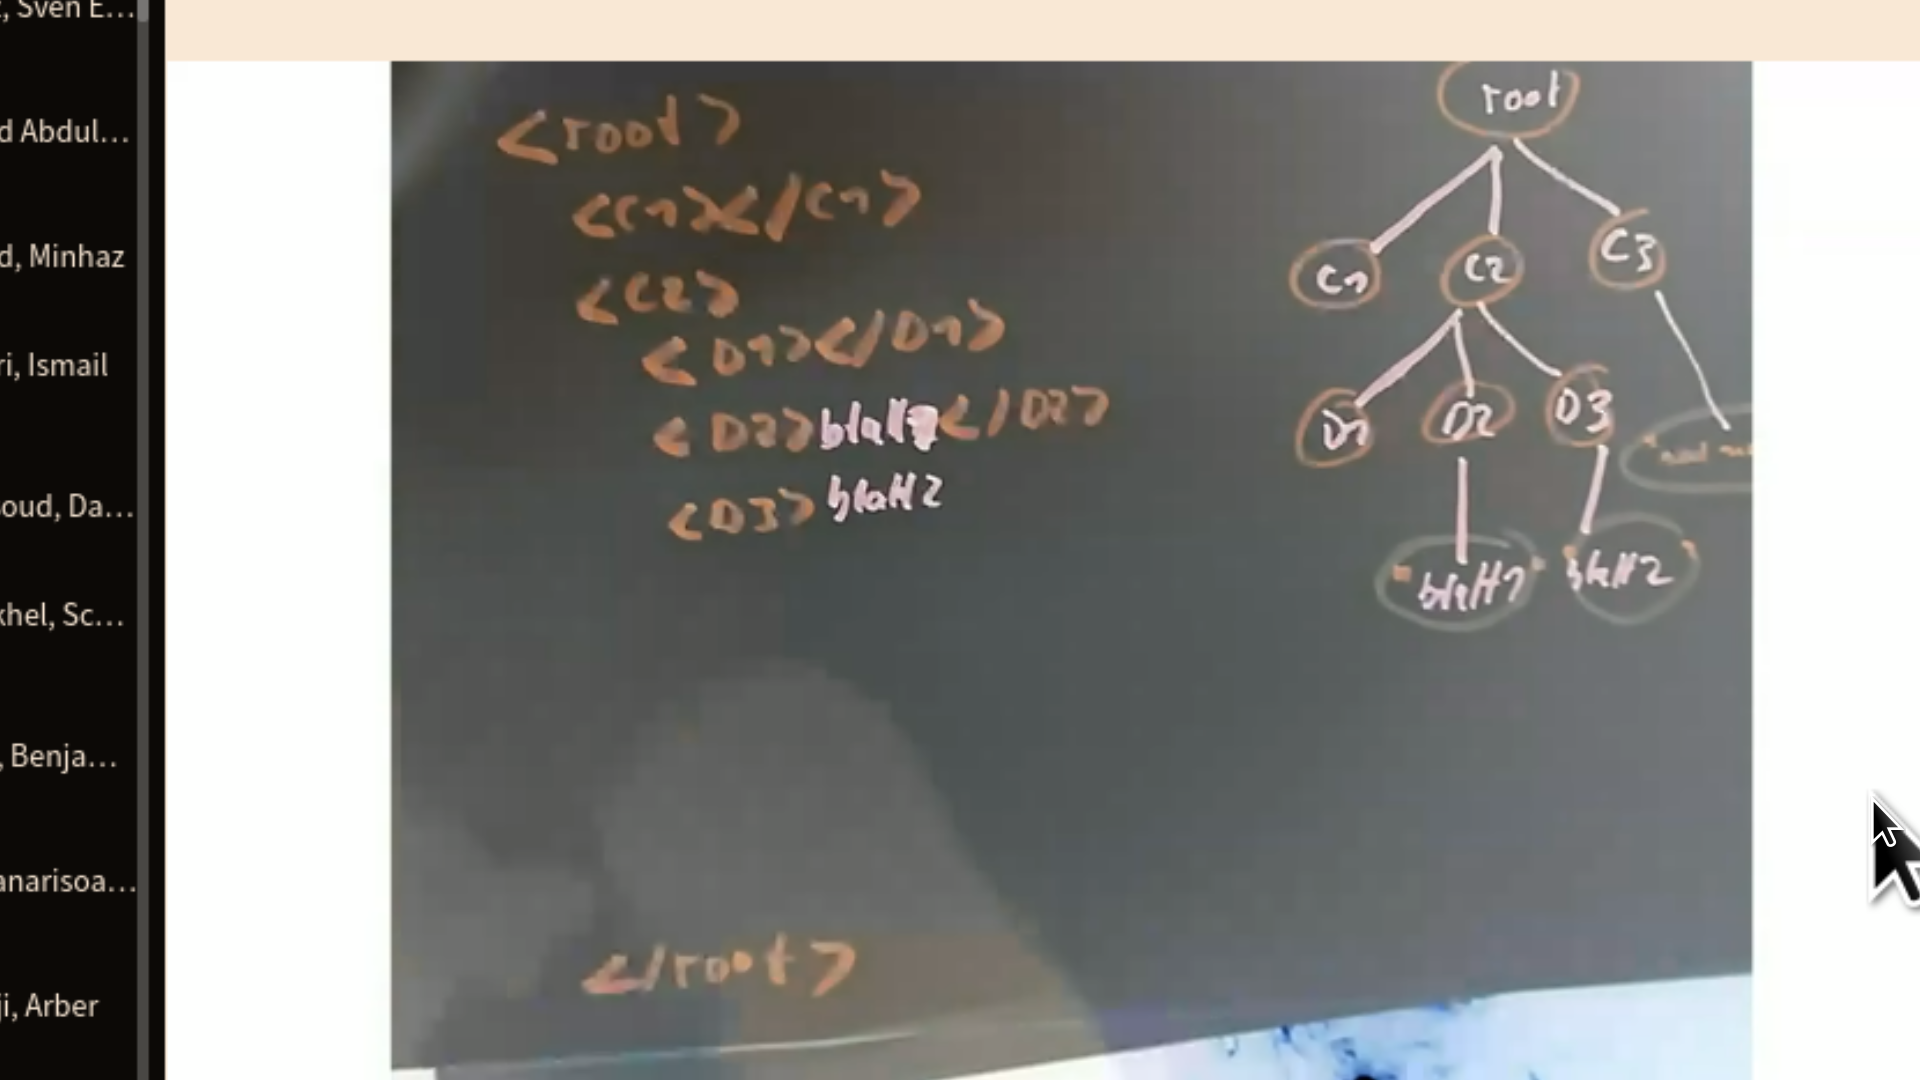 , Sven E...
d Abdul...
d, Minhaz
ri, Ismail
oud, Da...
khel, Sc...
, Benja...
anarisoa...
ji, Arber
<root>
<C1></C1>
<C2>
<D1></D1>
<D2>blatt1</D2>
<D3>blatt2
</root>
root
C1 C2 C3
D1 D2 D3
"blatt1" "blatt2"